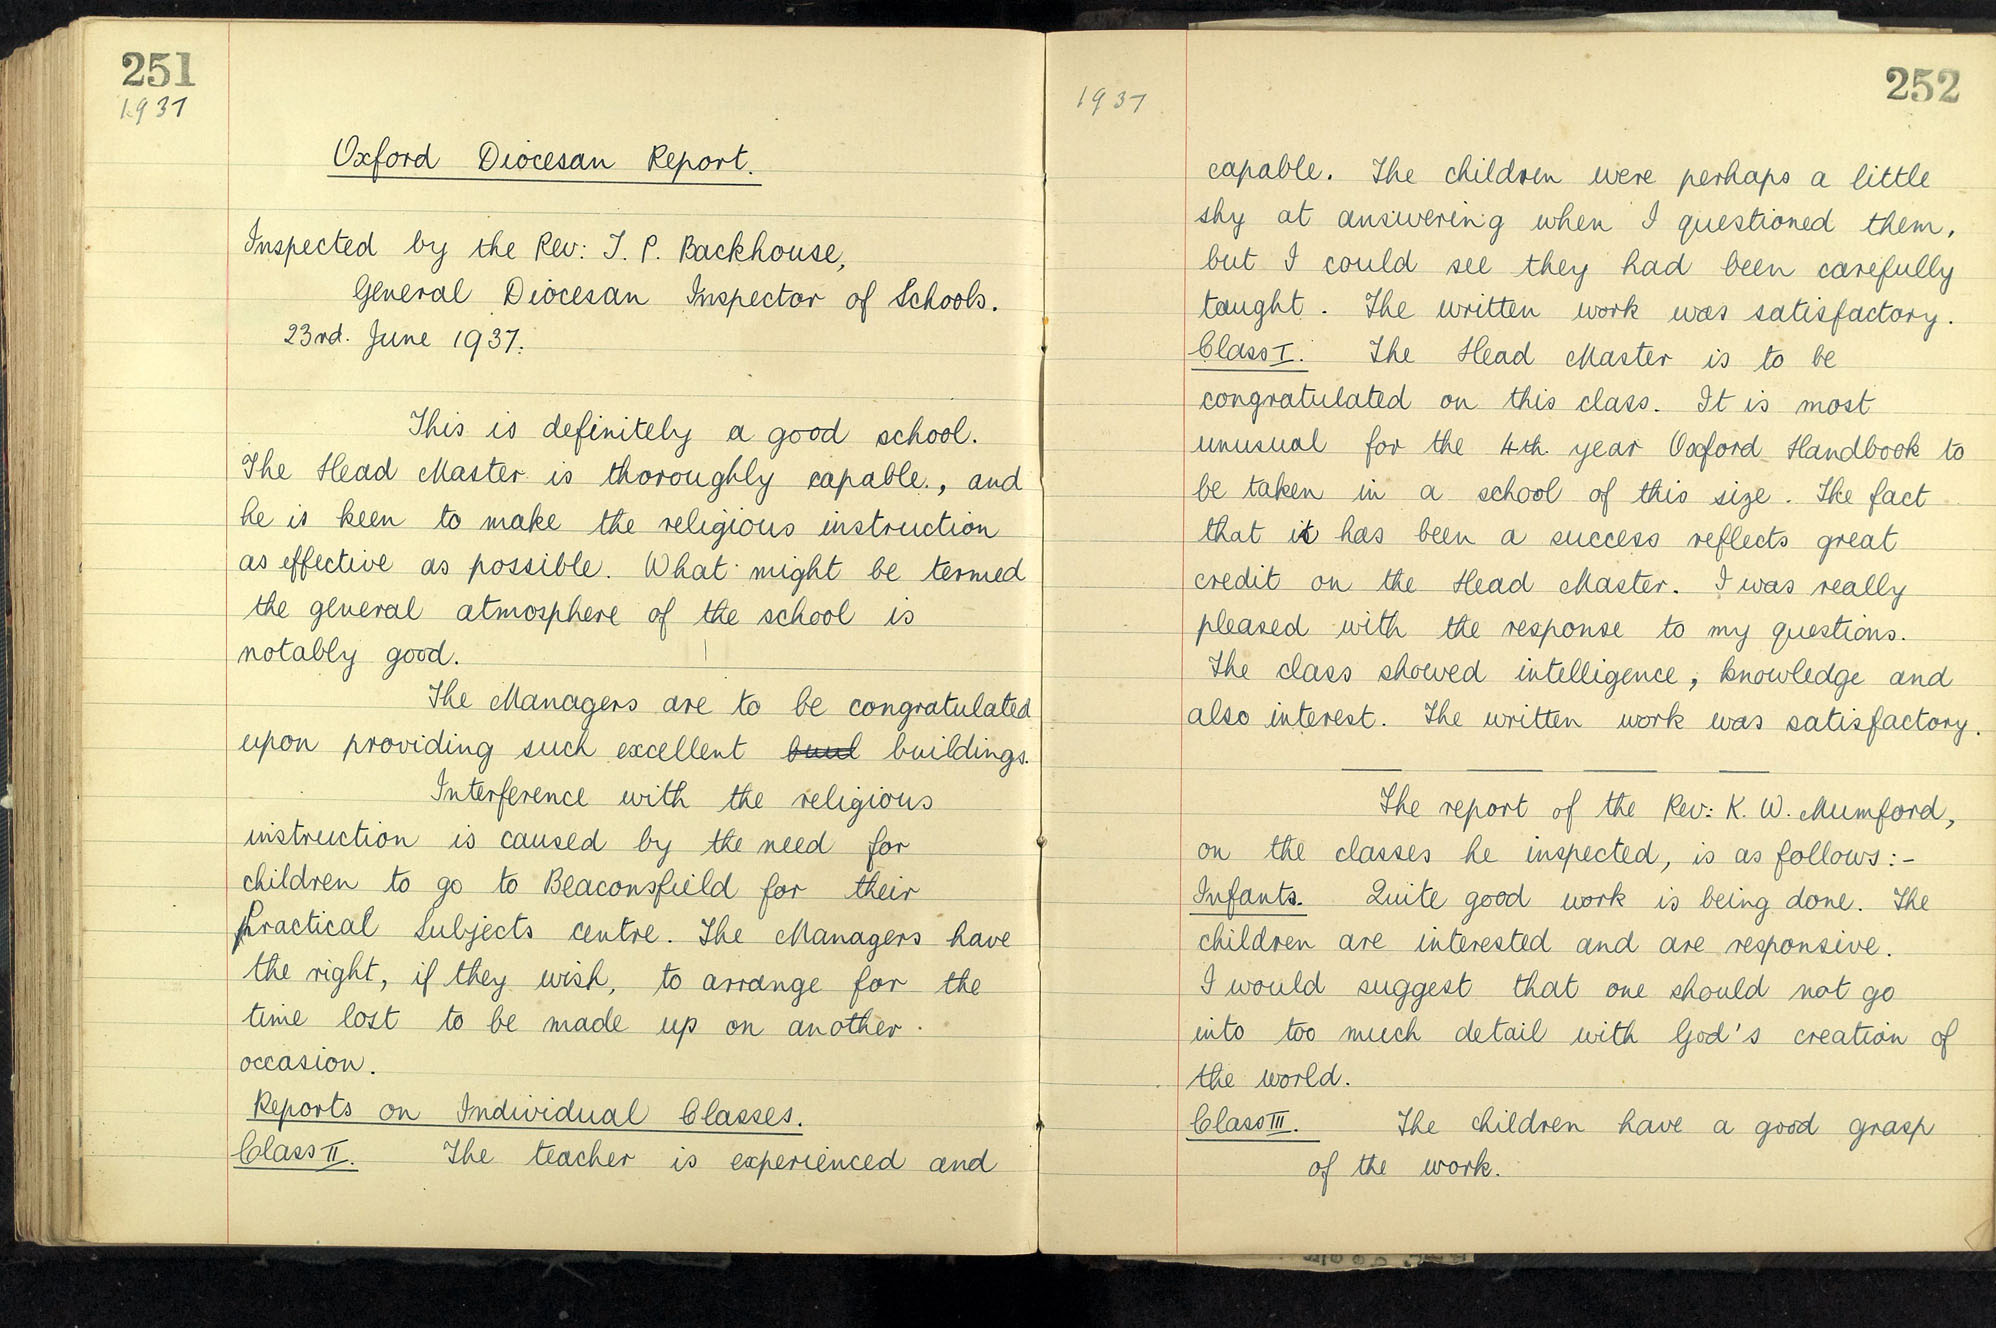 251
1937
Oxford Diocesan Report.
Inspected by the Rev: T. P. Backhouse,
General Diocesan Inspector of Schools.
23rd. June 1937.
This is definitely a good school.
The Head Master is thoroughly capable, and
he is keen to make the religious instruction
as effective as possible. What might be termed
the general atmosphere of the school is
notably good.
The Managers are to be congratulated
upon providing such excellent buildings.
Interference with the religious
instruction is caused by the need for
children to go to Beaconsfield for their
Practical Subjects centre. The Managers have
the right, if they wish, to arrange for the
time lost to be made up on another
occasion.
Reports on Individual Classes.
Class II. The teacher is experienced and
1937
252
capable. The children were perhaps a little
shy at answering when I questioned them,
but I could see they had been carefully
taught. The written work was satisfactory.
Class I. The Head Master is to be
congratulated on this class. It is most
unusual for the 4th. year Oxford Handbook to
be taken in a school of this size. The fact
that it has been a success reflects great
credit on the Head Master. I was really
pleased with the response to my questions.
The class showed intelligence, knowledge and
also interest. The written work was satisfactory.
The report of the Rev: K. W. Mumford,
on the classes he inspected, is as follows:-
Infants. Quite good work is being done. The
children are interested and are responsive.
I would suggest that one should not go
into too much detail with God's creation of
the world.
Class III. The children have a good grasp
of the work.